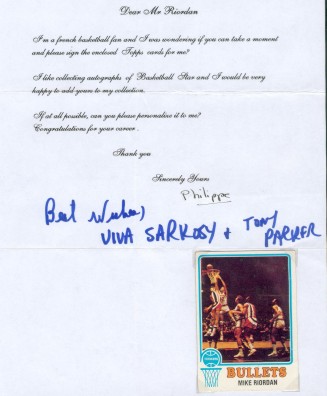 Dear Mr Riordan
I'm a french basketball fan and I was wondering if you can take a moment
and please sign the enclosed Topps cards for me?
I like collecting autographs of Basketball Star and I would be very
happy to add yours to my collection.
If at all possible, can you please personalize it to me?
Congratulations for your career .
Thank you
Sincerely Yours
Philippe
Best Wishes,
VIVA SARKOSY & TONY
PARKER
BULLETS
MIKE RIORDAN